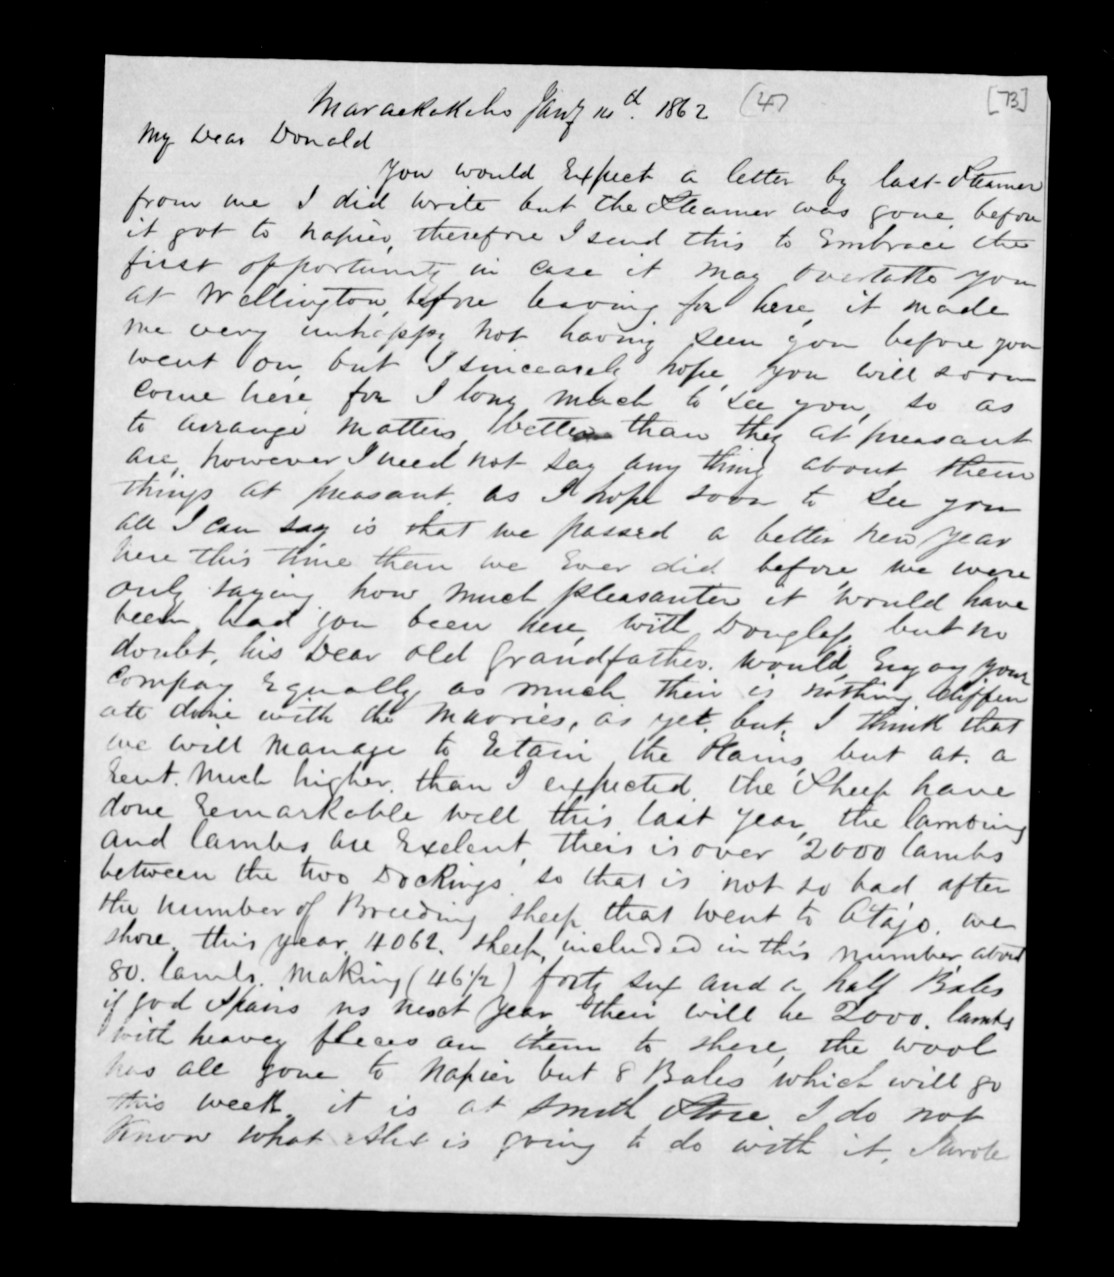 Maraekakaho Jany 14d. 1862 (4) [73]
My Dear Donald
You would Expect a letter by last Steamer
from me I did write but the Steamer was gone before
it got to Napier, therefore I send this to Embrace the
first opportunity in case it may overtake you
at Wellington, before leaving for here, it made
me very unhappy not having seen you before you
went on, but I sincearely hope, you will soon
come here, for I long much to see you, so as
to arrange matters, better than they at preasant
are, however I need not say any thing about them
things at preasant. as I hope soon to see you
all I can say is that we passed a better new year
here this time than we Ever did before we were
only saying how much pleasanter it would have
been, had you been here, with Douglass, but no
doubt, his Dear old Grandfather. would Enjoy your
compay Equally as much their is nothing differn
ate done with the Maories, as yet, but, I think that
we will manage to Retain the Plains, but at. a
Rent. much higher. than I expected, the Sheep have
done Remarkable well this last year, the lambing
and lambs are Exelent, their is over 2000 lambs
between the two Dockings, so that is not so bad after
the number of Breeding sheep that went to Otago. we
shore, this year, 4062. sheep, included in this number about
80. lambs, making (46½) forty six and a half Bales
if god Spairs us next year their will be 2000. lambs
with heavey fleces on them to shere, the wool
has all gone to Napier but 8 Bales which will go
this week, it is at Smith Store I do not
know what is going to do with it, I wrote